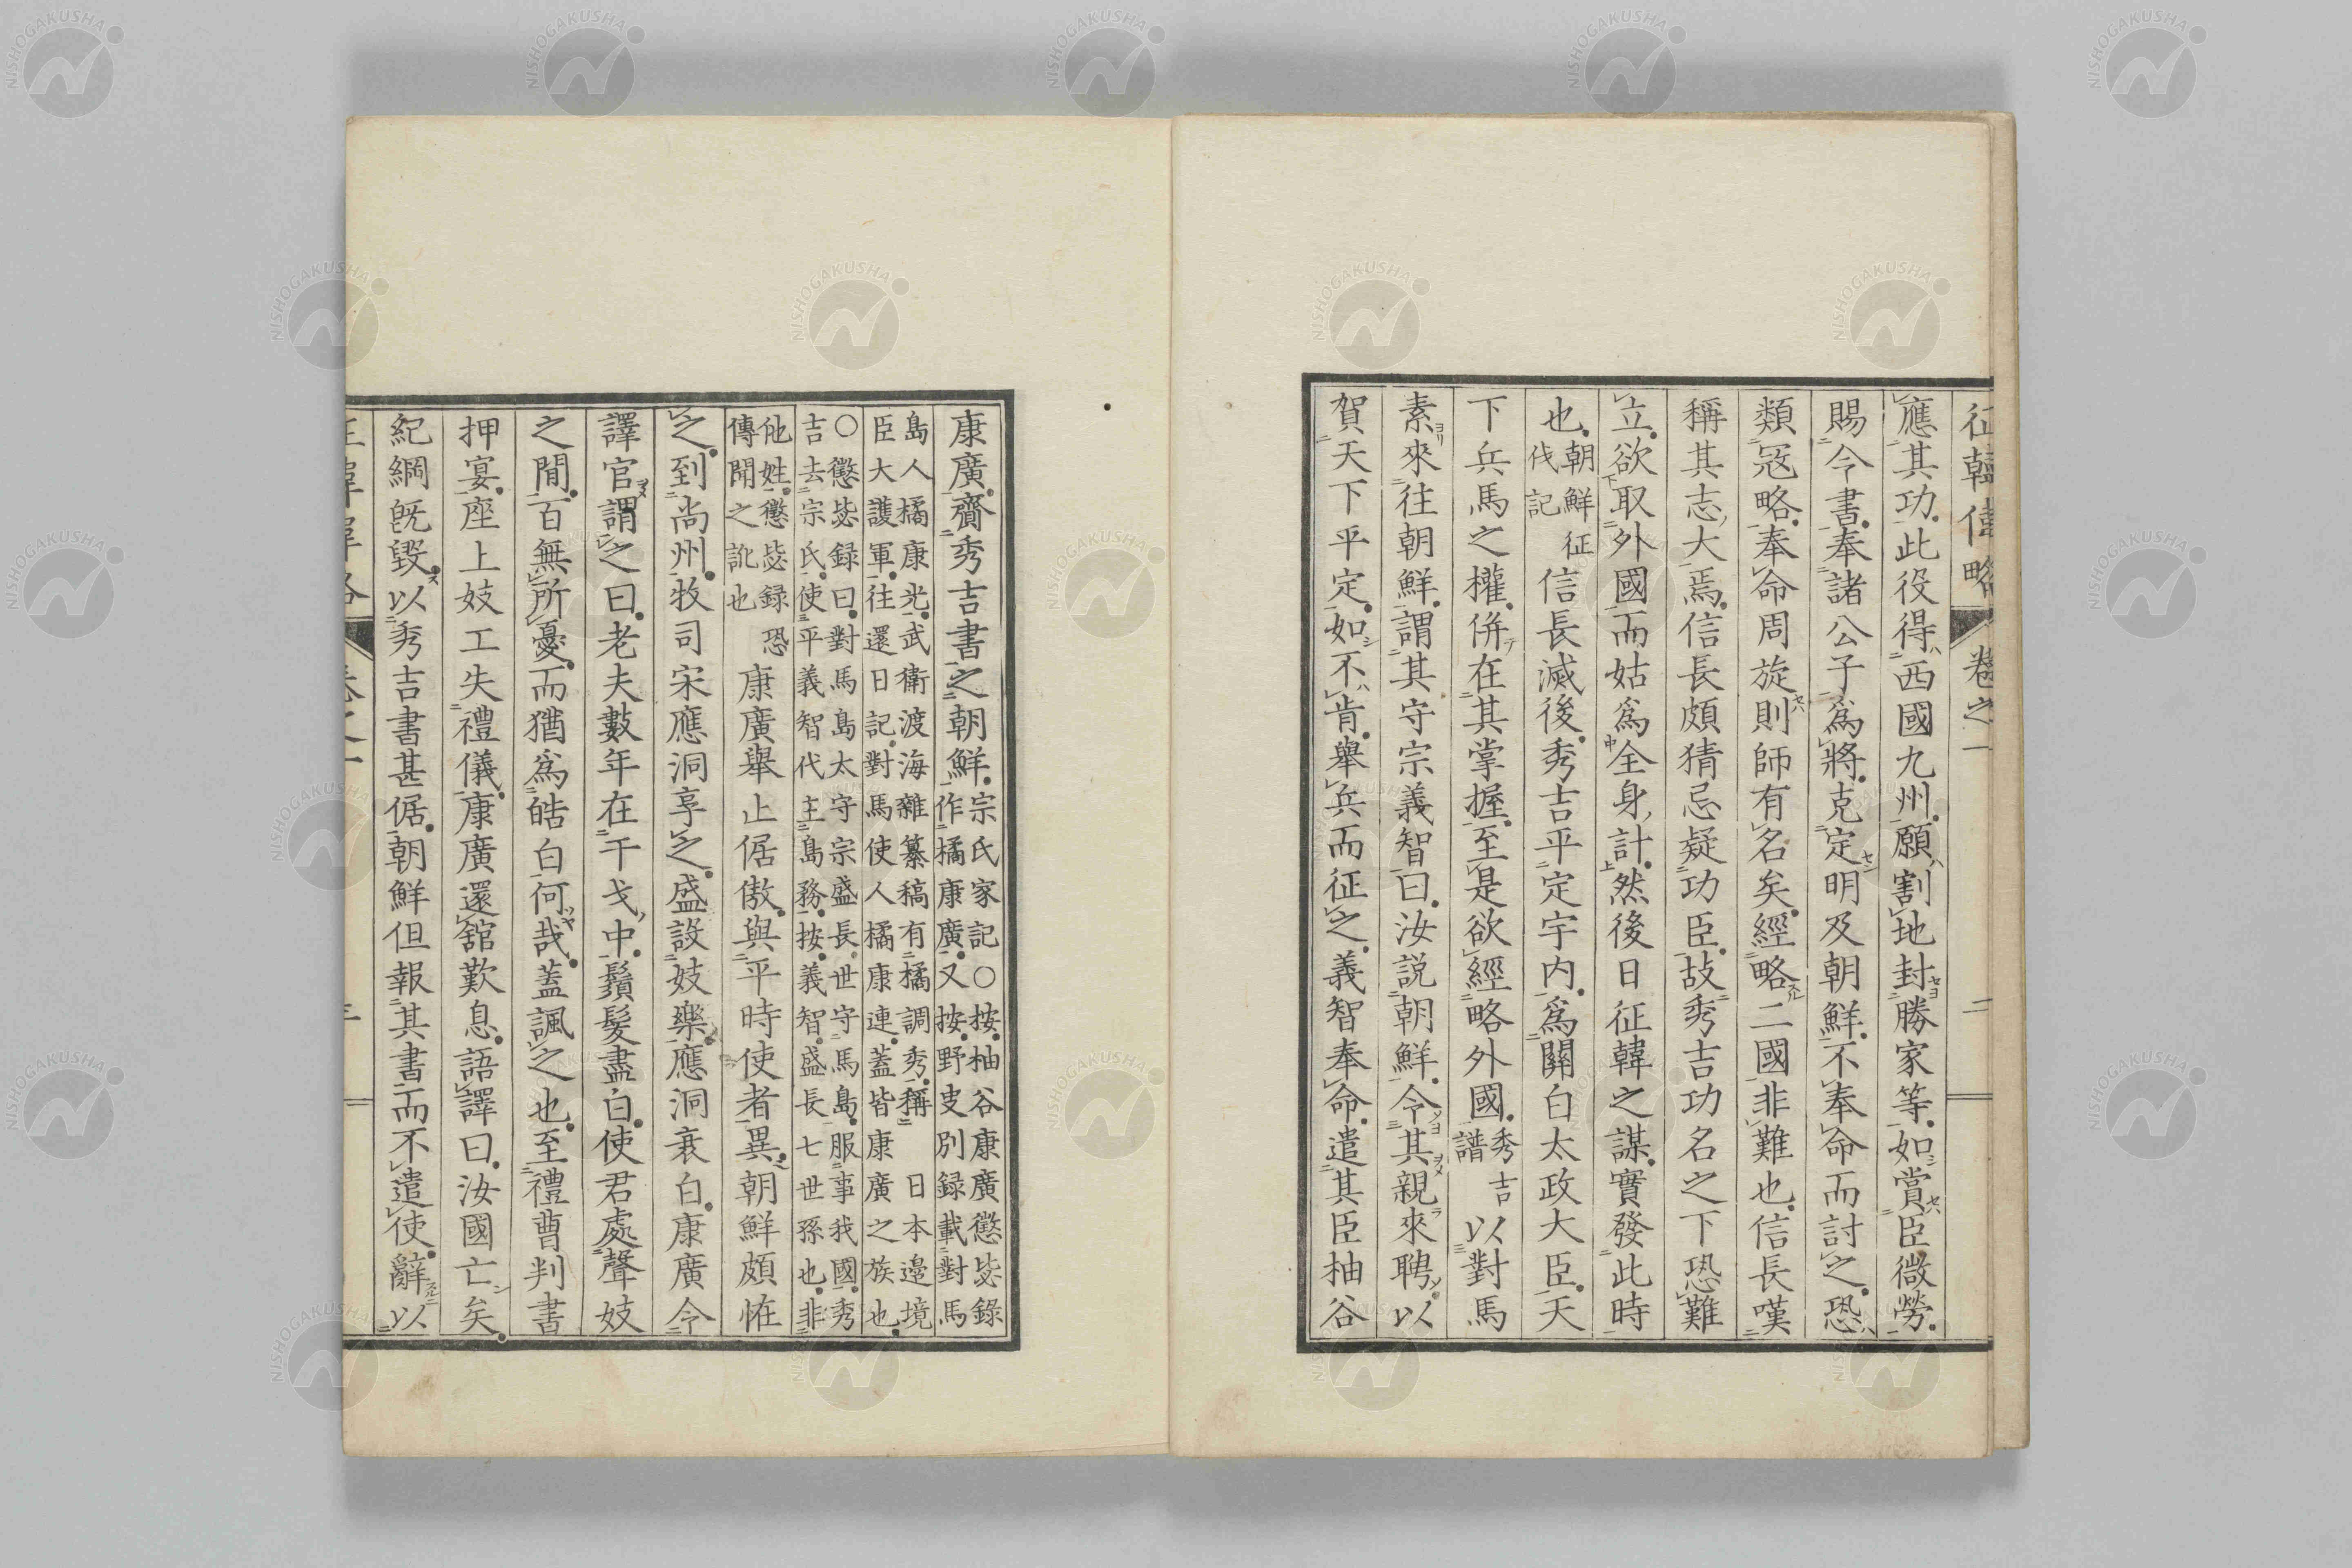 征韓偉略 卷之一 二
應其功此役得西國九州願割地封勝家等如賞臣微勞
賜令書奉諸公子爲將克定明及朝鮮不奉命而討之恐
類冦略奉命周旋則師有名矣經略二國非難也信長嘆
稱其志大焉信長頗猜忌疑功臣故秀吉功名之下恐難
立欲取外國而姑爲全身計然後日征韓之謀實發此時
也朝鮮征伐記信長滅後秀吉平定宇内爲關白太政大臣天
下兵馬之權併在其掌握至是欲經略外國秀吉譜以對馬
素來往朝鮮謂其守宗義智曰汝説朝鮮令其親來聘以
賀天下平定如不肯舉兵而征之義智奉命遣其臣柚谷
康廣齎秀吉書之朝鮮宗氏家記○按柚谷康廣懲毖錄作橘康廣又按野史別録載對馬
島人橘康光武衛渡海雜纂稿有橘調秀稱日本邉境臣大護軍往還日記對馬使人橘康連蓋皆康廣之族也
○懲毖録曰對馬島太守宗盛長世守馬島服事我國秀吉去宗氏使平義智代主島務按義智盛長七世孫也非
他姓懲毖録恐傳聞之訛也康廣舉止倨傲與平時使者異朝鮮頗恠
之到尚州牧司宋應洞享之盛設妓樂應洞衰白康廣令
譯官謂之曰老夫數年在干戈中鬚髮盡白使君處聲妓
之閒百無所憂而猶爲皓白何哉蓋諷之也至禮曹判書
押宴座上妓工失禮儀康廣還舘歎息語譯曰汝國亡矣
紀綱旣毀以秀吉書甚倨朝鮮但報其書而不遣使辭以